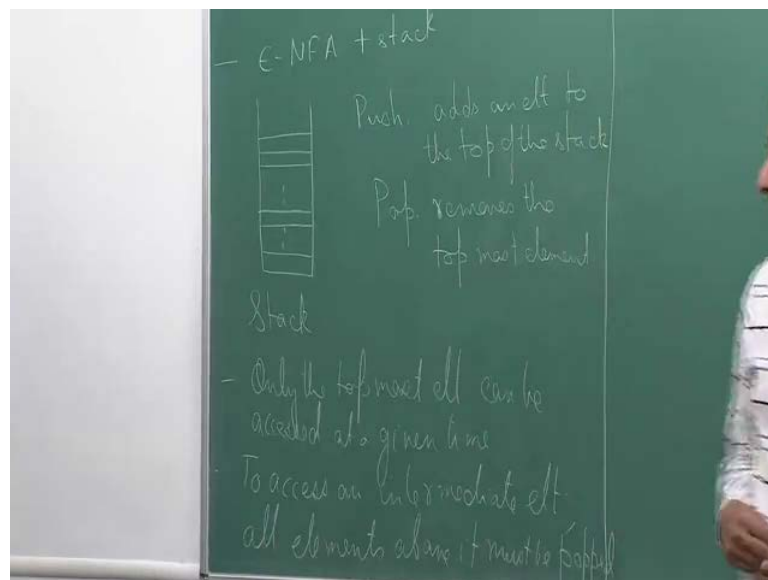 - ϵ-NFA + stack
Push. adds an elt to
the top of the stack
Pop. removes the
top most element
Stack
- Only the topmost elt can be
accessed at a given time
- To access an intermediate elt
all elements above it must be popped